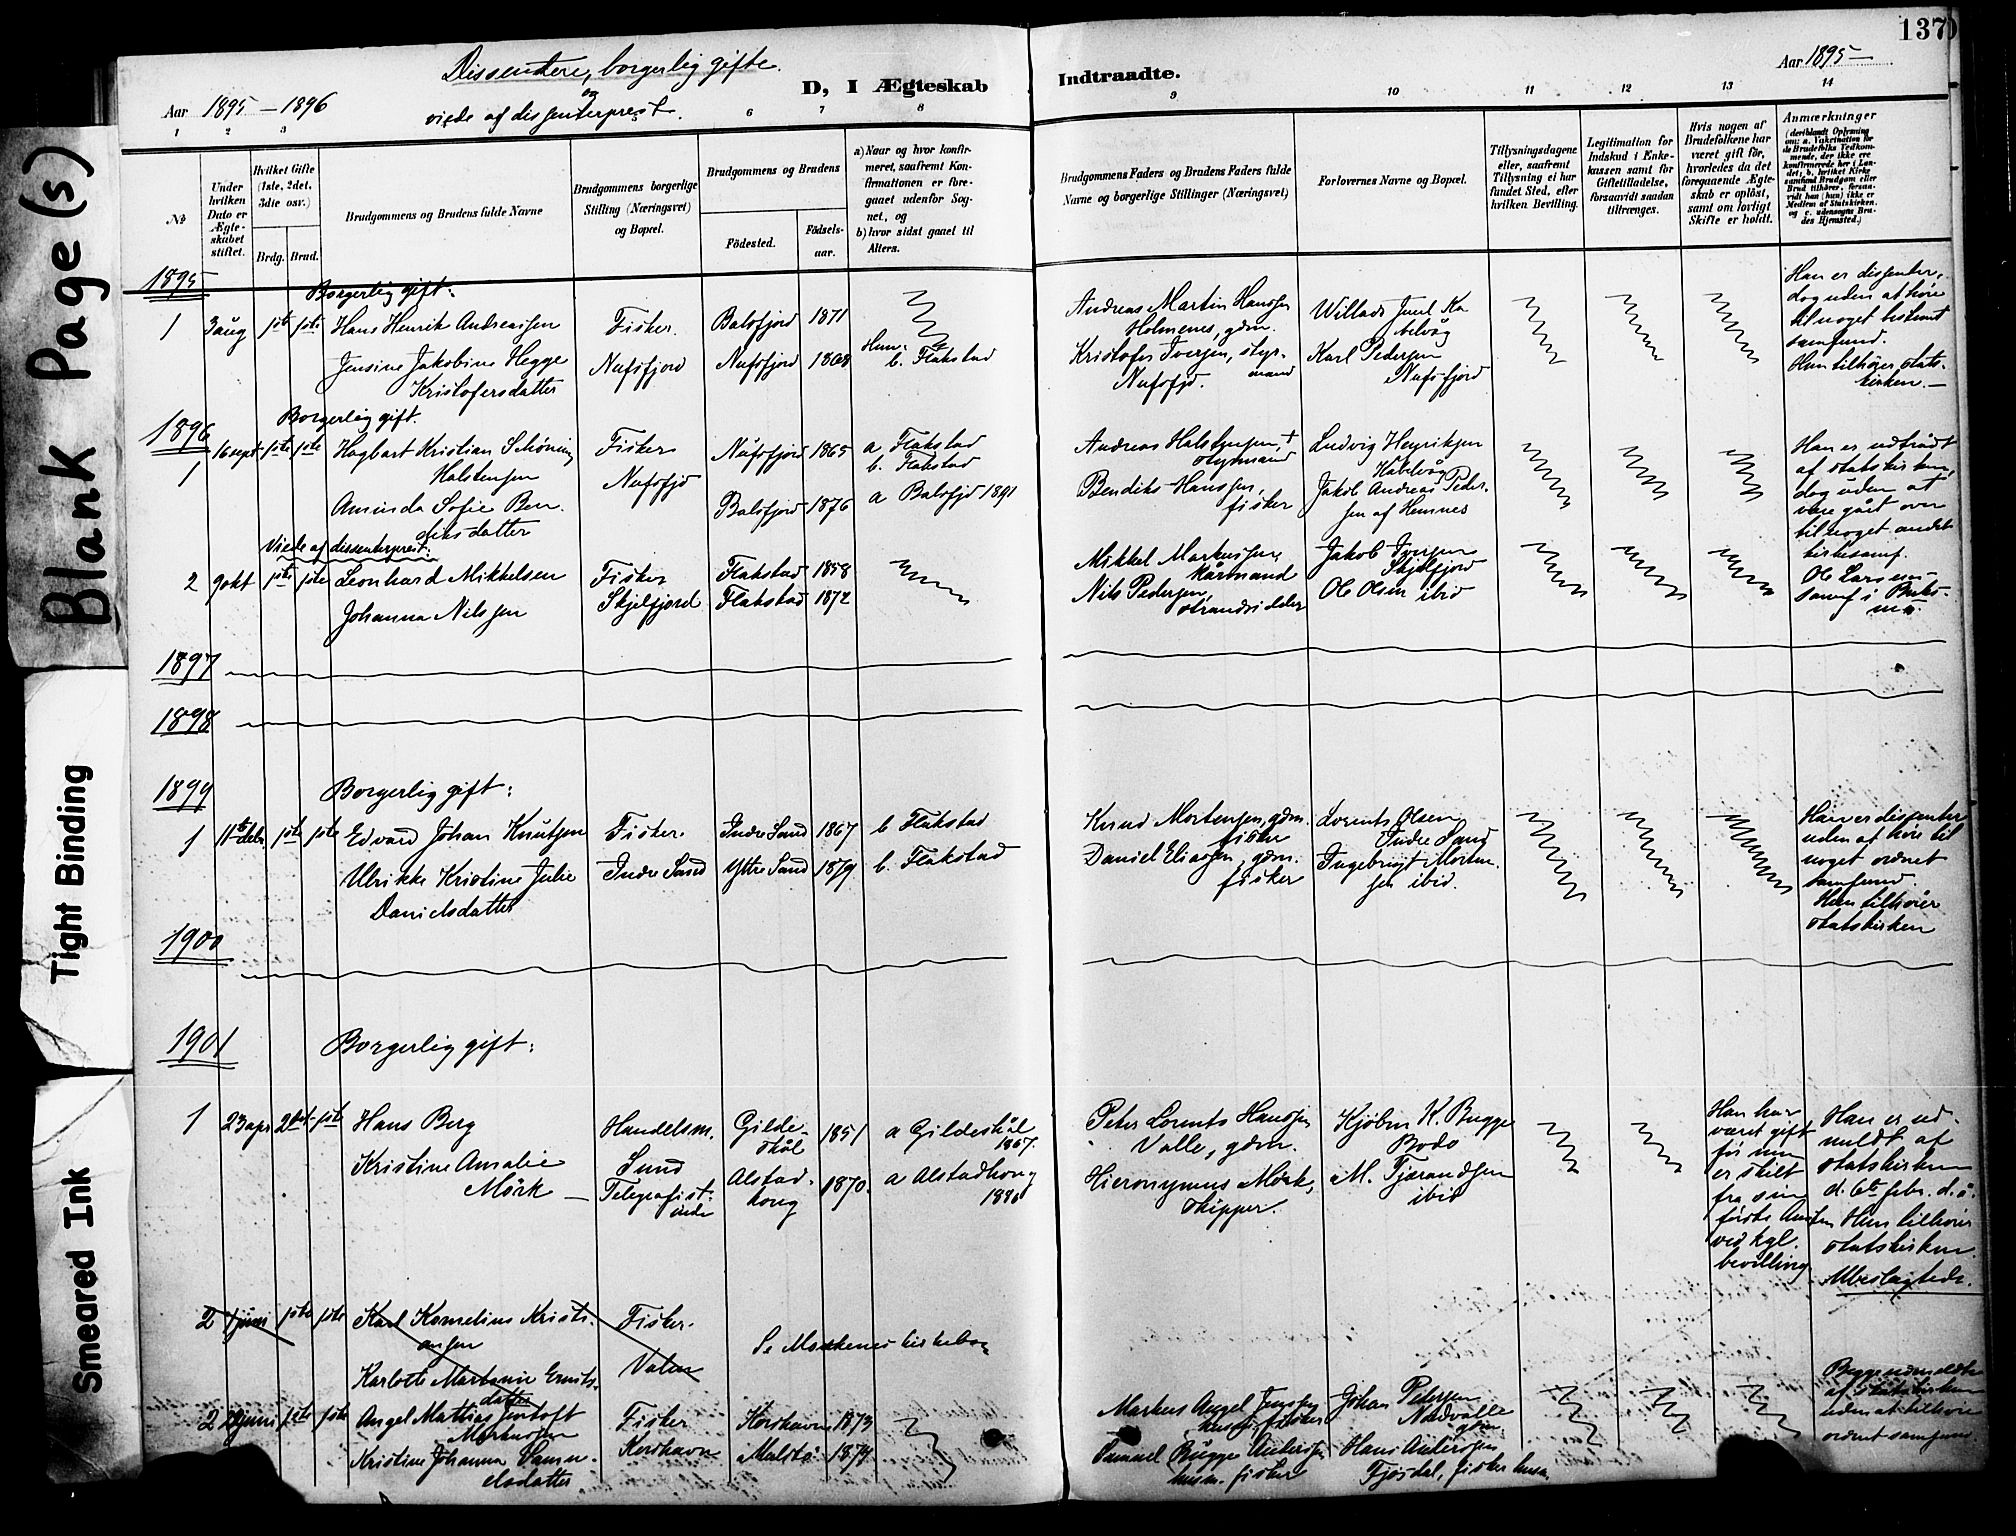 137
Dissentere, borgerlig gifte
og
viede af dissenterprest.
Aar 1895 – 1896
D, I Ægteskab
Indtraadte.
Aar 1895 –
1 2 3 6 7 8 9 10 11 12 13 14
No
Under hvilken Dato er Ægteskabet stiftet.
Hvilket Gifte (1ste, 2det, 3die osv.)
Brdg. Brud.
Brudgommens og Brudens fulde Navne
Brudgommens borgerlige Stilling (Næringsvei) og Bopæl.
Brudgommens og Brudens
Födested.
Födsels-aar.
a) Naar og hvor konfirmeret, saafremt Konfirmationen er foregaaet udenfor Sognet, og
b) hvor sidst gaaet til Alters.
Brudgommens Faders og Brudens Faders fulde Navne og borgerlige Stillinger (Næringsvei)
Forlovernes Navne og Bopæl.
Tillysningsdagene eller, saafremt Tillysning ei har fundet Sted, efter hvilken Bevilling.
Legitimation for Indskud i Enkekassen samt for Giftetilladelse, forsaavidt saadan tiltrænges.
Hvis nogen af Brudefolkene har været gift för, hvorledes da det foregaaende Ægteskab er oplöst, samt om lovligt Skifte er holdt.
Anmærkninger
(deriblandt Oplysning om: a. Vakcination for de Brudefolks Vedkommende, der ikke ere konfirmerede her i Landet; b. hvilket Kirkesamfund Brudgom eller Brud tilhörer, forsaavidt han (hun) ikke er Medlem af Statskirken, og c. udensogns Brudes Hjemsted.)
1895
Borgerlig gift:
1 3 aug 1ste 1ste Hans Henrik Andreassen Fisker. Balsfjord 1871
Jensine Jakobine Hegge Nufsfjord Nufsfjord 1868 b. Flakstad
Kristofersdatter
Andreas Martin Hanssen
Holmenes, gdm.
Kristofer Iversen, styrmand
Nufsfjd.
Willads Juul Kabelvåg
Karl Pedersen
Nufsfjord
Han er dissenter,
dog uden at höre
til noget bestemt
samfund.
Hun tilhører statskirken. –
1896
Borgerlig gift.
1 16 sept 1ste 1ste Hagbart Kristian Schöning Fisker Nufsfjord 1865 a Flakstad
b. Flakstad
Halstensen Nufsfjd
Aminda Sofie Bendiksdatter Balsfjord 1876 a Balsfjd 1891
Andreas Halstensen, †
styrmand
Bendiks Hanssen,
fisker
Ludvig Henriksen
Kabelvåg
Jakob Andreas Pedersen af Hemnes
Han er udtrådt
af statskirken,
dog uden at
være gået over
til noget andet
kirkesamf.
Viede af dissenterprest:
2 9 okt 1ste 1ste Leonhard Mikkelsen Fisker Flakstad 1858
Johanna Nilssen Skjelfjord Flakstad 1872
Mikkel Markussen
kårmand
Nils Pedersen,
strandsidder
Jakob Iversen
Skjelfjord
Ole Olsen ibid
Ole Larsens
samf i
1897
1898
1899
Borgerlig gift:
1 11te 1ste 1ste Edvard Johan Knutsen Fisker Indre Sand 1867 b Flakstad
Ulrikke Kristine Julie Indre Sand Yttre Sand 1879 b. Flakstad
Danielsdatter
Knud Mortensen, gdm.
fisker
Daniel Eliassen, gdm.
fisker
Lorents Olsen
Indre Sand
Ingebrigt Mortensen ibid.
Han er dissenter
uden at höre til
noget ordnet
samfund
Hun tilhører
statskirken
1900
1901
Borgerlig gift:
1 23 apr 2det 1ste Hans Berg Handelsm. Gildeskål 1851 a Gildeskål
1867.
Kristine Amalie Sund Alstadhoug 1870. a Alstadhoug
Mörk – Telegrafistinde 1886
Peter Lorents Hanssen
Valle, gdm.
Hieronymus Mörk,
skipper.
Kjöbm K. Bugge
Bodo
M. Fjærandsen
ibid
Han har
været gift
för men
er skilt
fra sin
förste
ved kgl.
bevilling
Han er udmeldt af
statskirken
d. 6te febr. d. å.
Hun tilhører
statskirken.
Ubeslægtede.
2 juni 1ste 1ste Karl Kornelius Kristiansen Fisker.
Karlotte Martonie datter
Se Moskenes kirkebog
2 juni 1ste 1ste Angel Mathias Jentoft Fisker Korshavn 1873
Markussen Korshavn
Kristine Johanna Samuelsdatter 1874
Markus Angel Jenssen
husm. fisker
Samuel Bugge Anderssen
husm. fisker
Johan Pedersen
Nordvalle
Hans Anderssen
Fjøsdal, fisker husm
Begge udmeldte
af statskirken
uden at tilhöre
ordnet samfund.
Blank Page(s)
Tight Binding
Smeared Ink